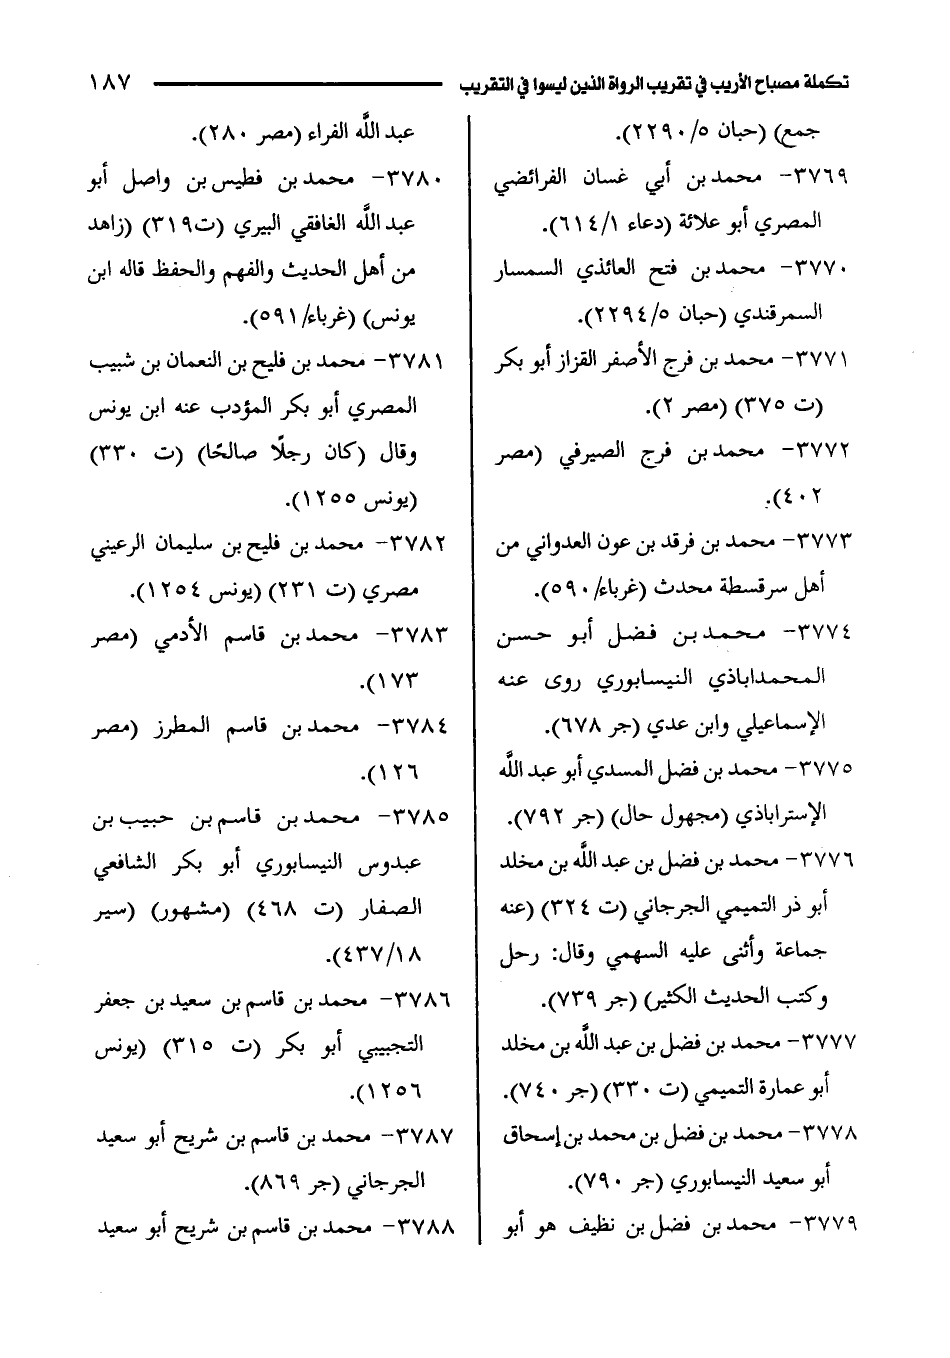 تكملة مصباح الأريب في تقريب الرواة الذين ليسوا في التقريب ١٨٧
جمع) (حبان ٥/ ٢٢٩٠).
٣٧٦٩- محمد بن أبي غسان الفرائضي
المصري أبو علاثة (دعاء ٦١٤/١).
٣٧٧٠- محمد بن فتح العائذي السمسار
السمرقندي (حبان ٥/ ٢٢٩٤).
٣٧٧١- محمد بن فرج الأصفر القزاز أبو بكر
(ت ٣٧٥) (مصر ٢).
٣٧٧٢- محمد بن فرج الصيرفي (مصر
٤٠٢).
٣٧٧٣- محمد بن فرقد بن عون العدواني من
أهل سرقسطة محدث (غرباء/ ٥٩٠).
٣٧٧٤- محمد بن فضل أبو حسن
المحمداباذي النيسابوري روى عنه
الإسماعيلي وابن عدي (جر ٦٧٨).
٣٧٧٥- محمد بن فضل المسدي أبو عبد اللَّه
الإستراباذي (مجهول حال) (جر ٧٩٢).
٣٧٧٦- محمد بن فضل بن عبد اللَّه بن مخلد
أبو ذر التميمي الجرجاني (ت ٣٢٤) (عنه
جماعة وأثنى عليه السهمي وقال: رحل
وكتب الحديث الكثير) (جر ٧٣٩).
٣٧٧٧- محمد بن فضل بن عبد اللَّه بن مخلد
أبو عمارة التميمي (ت ٣٣٠) (جر ٧٤٠).
٣٧٧٨- محمد بن فضل بن محمد بن إسحاق
أبو سعيد النيسابوري (جر ٧٩٠).
٣٧٧٩- محمد بن فضل بن نظيف هو أبو
عبد اللَّه الفراء (مصر ٢٨٠).
٣٧٨٠- محمد بن فطيس بن واصل أبو
عبد اللَّه الغافقي البيري (ت٣١٩) (زاهد
من أهل الحديث والفهم والحفظ قاله ابن
يونس) (غرباء/ ٥٩١).
٣٧٨١- محمد بن فليح بن النعمان بن شبيب
المصري أبو بكر المؤدب عنه ابن يونس
وقال (كان رجلًا صالحًا) (ت ٣٣٠)
(يونس ١٢٥٥).
٣٧٨٢- محمد بن فليح بن سليمان الرعيني
مصري (ت ٢٣١) (يونس ١٢٥٤).
٣٧٨٣- محمد بن قاسم الأدمي (مصر
١٧٣).
٣٧٨٤- محمد بن قاسم المطرز (مصر
١٢٦).
٣٧٨٥- محمد بن قاسم بن حبيب بن
عبدوس النيسابوري أبو بكر الشافعي
الصفار (ت ٤٦٨) (مشهور) (سير
٤٣٧/١٨).
٣٧٨٦- محمد بن قاسم بن سعيد بن جعفر
التجيبي أبو بكر (ت ٣١٥) (يونس
١٢٥٦).
٣٧٨٧- محمد بن قاسم بن شريح أبو سعيد
الجرجاني (جر ٨٦٩).
٣٧٨٨- محمد بن قاسم بن شريح أبو سعيد